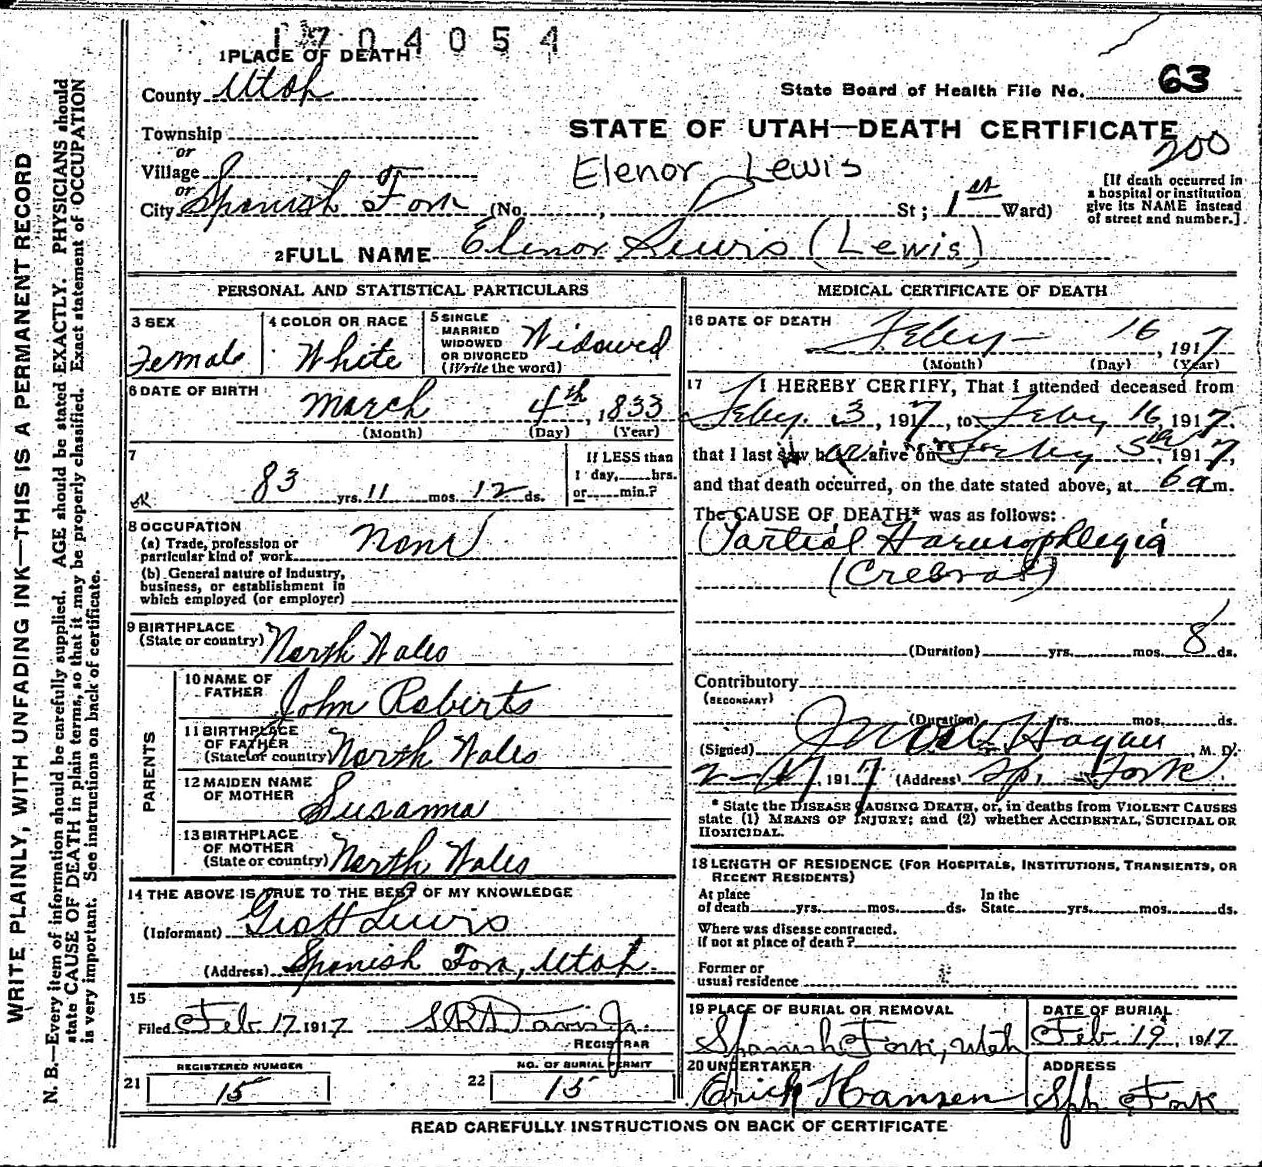 1704054
1 PLACE OF DEATH
County Utah
State Board of Health File No. 63
Township
STATE OF UTAH—DEATH CERTIFICATE
200
or
Village
Elenor Lewis
or
City Spanish Fork (No. , St; 1st Ward)
[If death occurred in a hospital or institution give its NAME instead of street and number.]
2 FULL NAME Elenor Lewis (Lewis)
PERSONAL AND STATISTICAL PARTICULARS
3 SEX Female
4 COLOR OR RACE White
5 SINGLE MARRIED WIDOWED OR DIVORCED (Write the word) Widowed
6 DATE OF BIRTH March 4th, 1833
(Month) (Day) (Year)
7 83 yrs. 11 mos. 12 ds.
If LESS than 1 day, hrs. or min.?
8 OCCUPATION
(a) Trade, profession or particular kind of work None
(b) General nature of industry, business, or establishment in which employed (or employer)
9 BIRTHPLACE (State or country) North Wales
PARENTS
10 NAME OF FATHER John Roberts
11 BIRTHPLACE OF FATHER (State or country) North Wales
12 MAIDEN NAME OF MOTHER Susanna
13 BIRTHPLACE OF MOTHER (State or country) North Wales
14 THE ABOVE IS TRUE TO THE BEST OF MY KNOWLEDGE
(Informant) Geo H Lewis
(Address) Spanish Fork, Utah.
15
Filed Feb 17 1917 S R Davis Jr.
REGISTRAR
REGISTERED NUMBER
21 15
NO. OF BURIAL PERMIT
22 15
MEDICAL CERTIFICATE OF DEATH
16 DATE OF DEATH Feby 16, 1917
(Month) (Day) (Year)
17 I HEREBY CERTIFY, That I attended deceased from
Feby. 3, 1917, to Feby 16 1917,
that I last saw her alive on Feby 5th, 1917,
and that death occurred, on the date stated above, at 6 a m.
The CAUSE OF DEATH* was as follows:
Partial
(Duration) yrs. mos. 8 ds.
Contributory
(SECONDARY)
(Duration) yrs. mos. ds.
(Signed) Hagan, M. D.
2-17 1917 (Address) Sp. Fork
* State the DISEASE CAUSING DEATH, or, in deaths from VIOLENT CAUSES
state (1) MEANS OF INJURY; and (2) whether ACCIDENTAL, SUICIDAL OR
HOMICIDAL.
18 LENGTH OF RESIDENCE (FOR HOSPITALS, INSTITUTIONS, TRANSIENTS, OR
RECENT RESIDENTS)
At place of death yrs. mos. ds. In the State yrs. mos. ds.
Where was disease contracted.
if not at place of death?
Former or
usual residence
19 PLACE OF BURIAL OR REMOVAL
Spanish Fork, Utah
DATE OF BURIAL
Feb. 19, 1917
20 UNDERTAKER
Erick Hansen
ADDRESS
Sph. Fork
READ CAREFULLY INSTRUCTIONS ON BACK OF CERTIFICATE
WRITE PLAINLY, WITH UNFADING INK—THIS IS A PERMANENT RECORD
N. B.—Every item of information should be carefully supplied. AGE should be stated EXACTLY. PHYSICIANS should
state CAUSE OF DEATH in plain terms, so that it may be properly classified. Exact statement of OCCUPATION
is very important. See instructions on back of certificate.